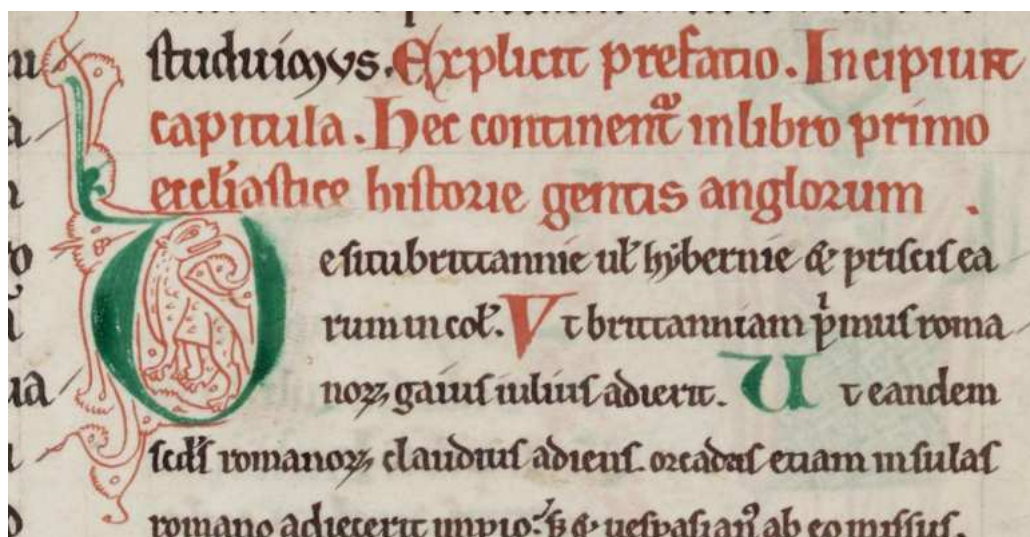 studuimus. Explicit prefatio. Incipiunt
capitula. Hec continent᷑ in libro primo
eccl'iastice historie gentis anglorum .
De situ brittannie ul' hybernie & priscis ea
rum incol'. Vt brittanniam p'mus roma
noꝝ, gaius iulius adierit. Ut eandem
sc'd's romanoꝝ, claudius adiens. orcadas etiam insulas
romano adiecerit imp̄io. & uespasian' ab eo missus,